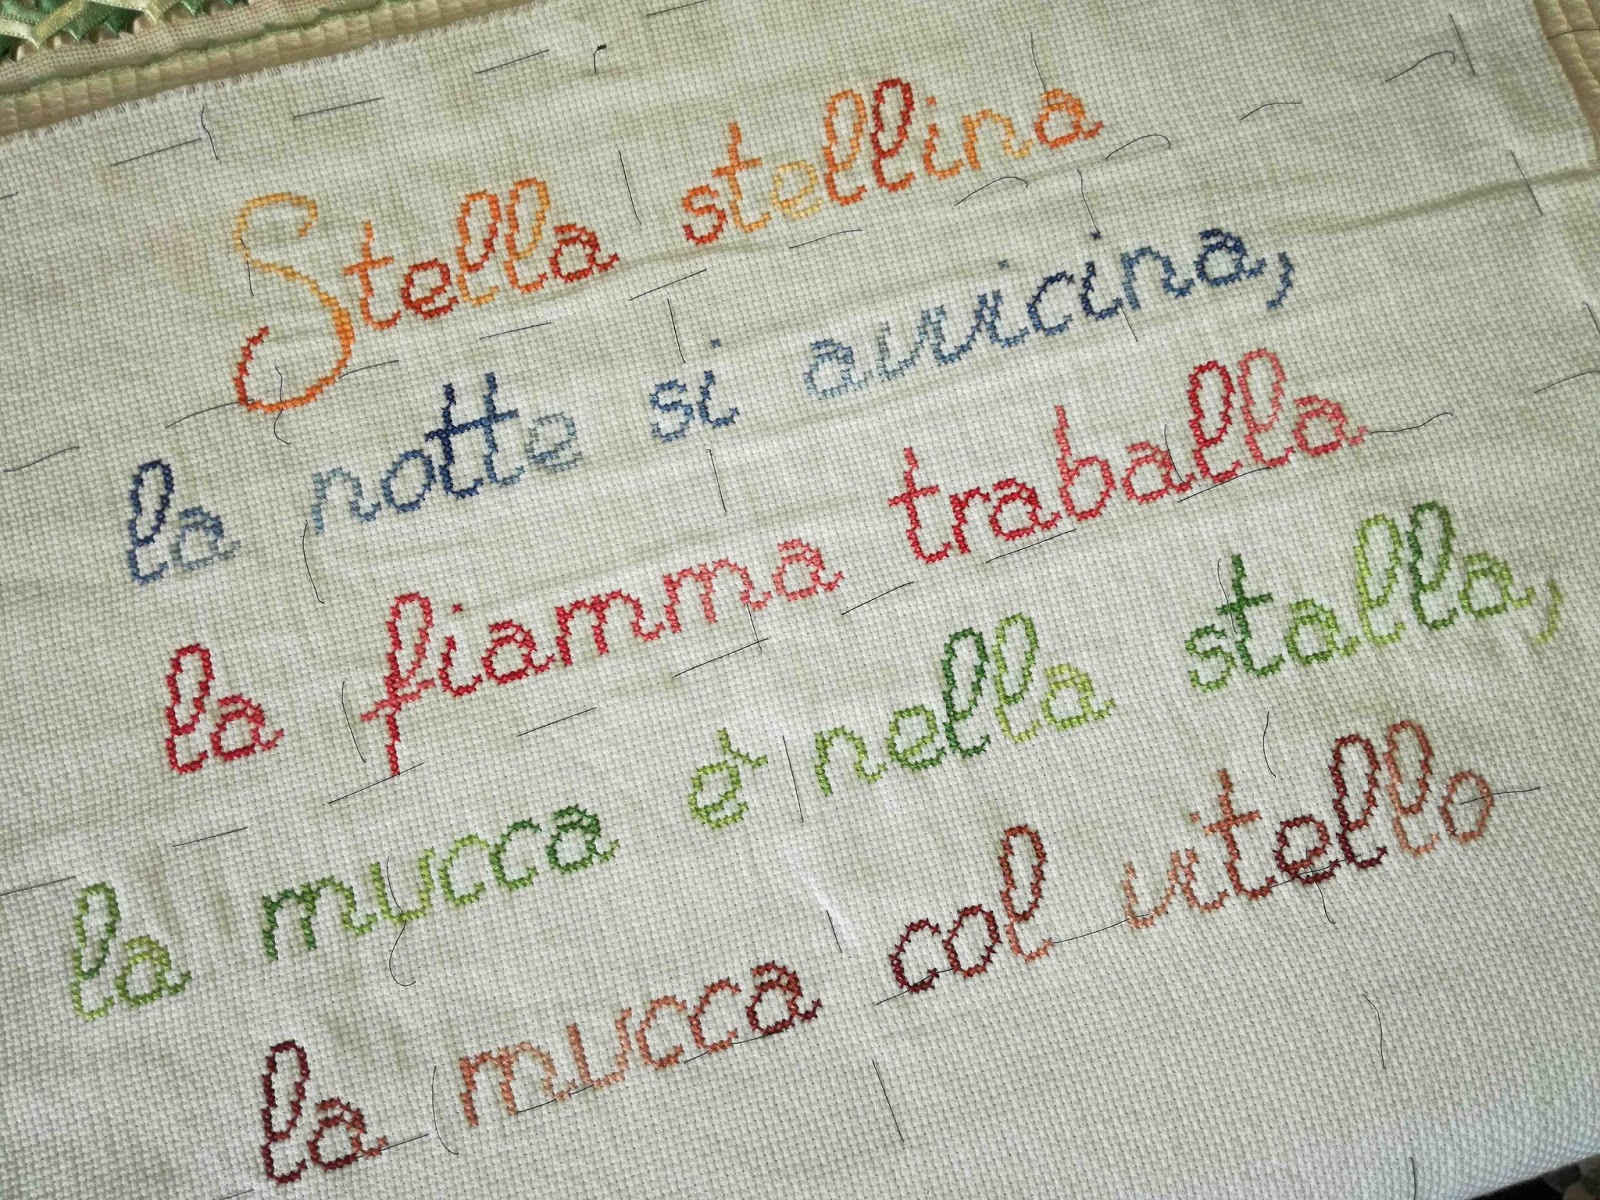 Stella stellina
la notte si avvicina,
la fiamma traballa
la mucca è nella stalla,
la mucca col vitello